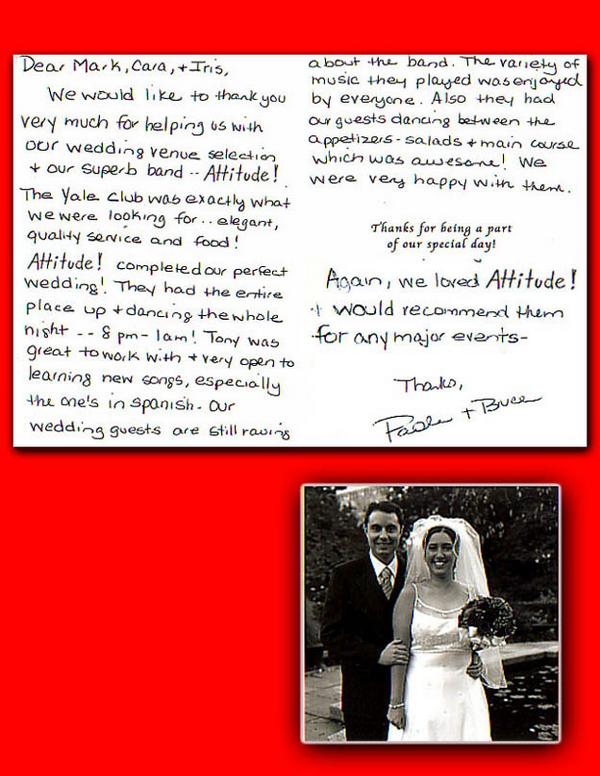 Dear Mark, Cara, + Iris,
We would like to thank you
very much for helping us with
our wedding venue selection
+ our superb band -- Attitude!
The Yale Club was exactly what
we were looking for.. elegant,
quality service and food!
Attitude! completed our perfect
wedding! They had the entire
place up + dancing the whole
night -- 8 pm - 1am! Tony was
great to work with + very open to
learning new songs, especially
the one's in spanish. Our
wedding guests are still raving
about the band. The variety of
music they played was enjoyed
by everyone. Also they had
our guests dancing between the
appetizers - salads + main course
which was awesome! We
were very happy with them.
Thanks for being a part
of our special day!
Again, we loved Attitude!
+ would recommend them
for any major events-
Thanks,
+ Bruce